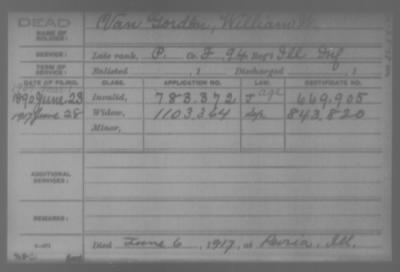 DEAD
NAME OF SOLDIER: Van Gordon, William W.
SERVICE: Late rank, P. Co. F, 94 Reg't Ill Inf
TERM OF SERVICE: Enlisted , 1 Discharged , 1
DATE OF FILING. CLASS. APPLICATION NO. CERTIFICATE NO.
1890 June 23 Invalid, 783.372 J age 669.905
1917 June 28 Widow, 1103364 843,820
Minor,
ADDITIONAL SERVICES:
REMARKS:
Died June 6, 1917, at Peoria, Ill.